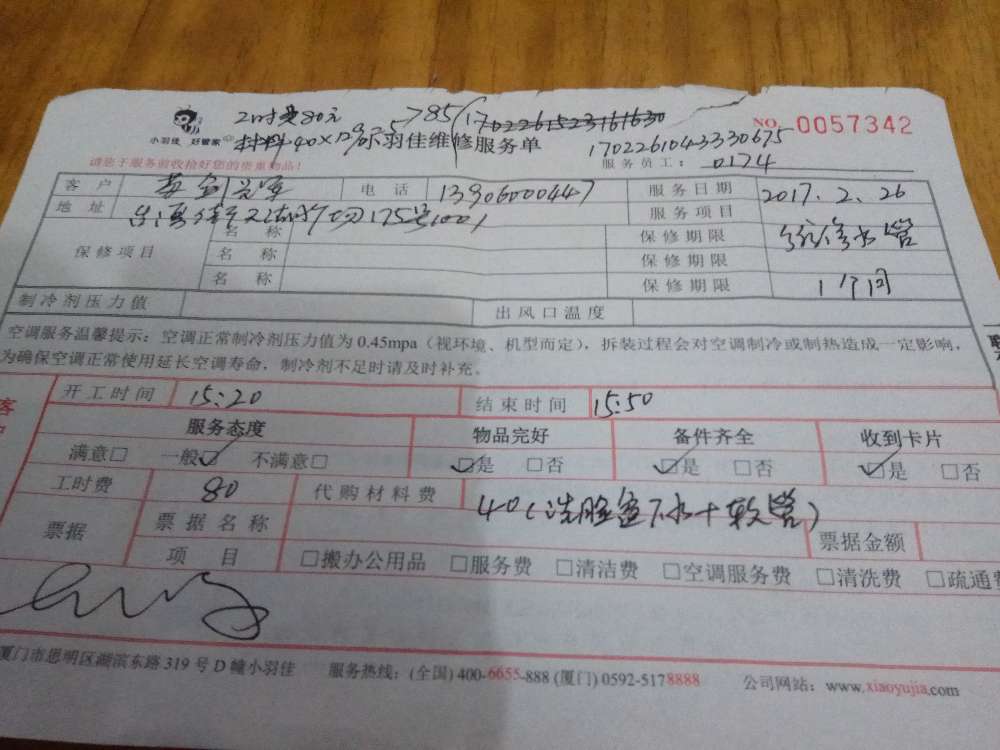 2时是80元 5785/1702261523161630
小羽佳 好管家 材料40×12% 小羽佳维修服务单 NO. 0057342
1702261043330675
请您于服务前收拾好您的贵重物品! 服务员工: 0174
客户 电话 13906000447 服务日期 2017.2.26
地址 175号1001 服务项目 维修水管
保修项目 名称 保修期限
名称 保修期限
名称 保修期限 1个月
制冷剂压力值 出风口温度
空调服务温馨提示:空调正常制冷剂压力值为 0.45mpa(视环境、机型而定),拆装过程会对空调制冷或制热造成一定影响,
为确保空调正常使用延长空调寿命,制冷剂不足时请及时补充。
开工时间 15:20 结束时间 15:50
服务态度 物品完好 备件齐全 收到卡片
满意□ 一般☑ 不满意□ ☑是 □否 ☑是 □否 ☑是 □否
工时费 80 代购材料费 40(洗脸盆下水+软管)
票据 票据名称 票据金额
项目 □搬办公用品 □服务费 □清洁费 □空调服务费 □清洗费 □疏通费
厦门市思明区湖滨东路 319 号 D 幢小羽佳 服务热线:(全国) 400-6655-888 (厦门) 0592-5178888 公司网站:www.xiaoyujia.com